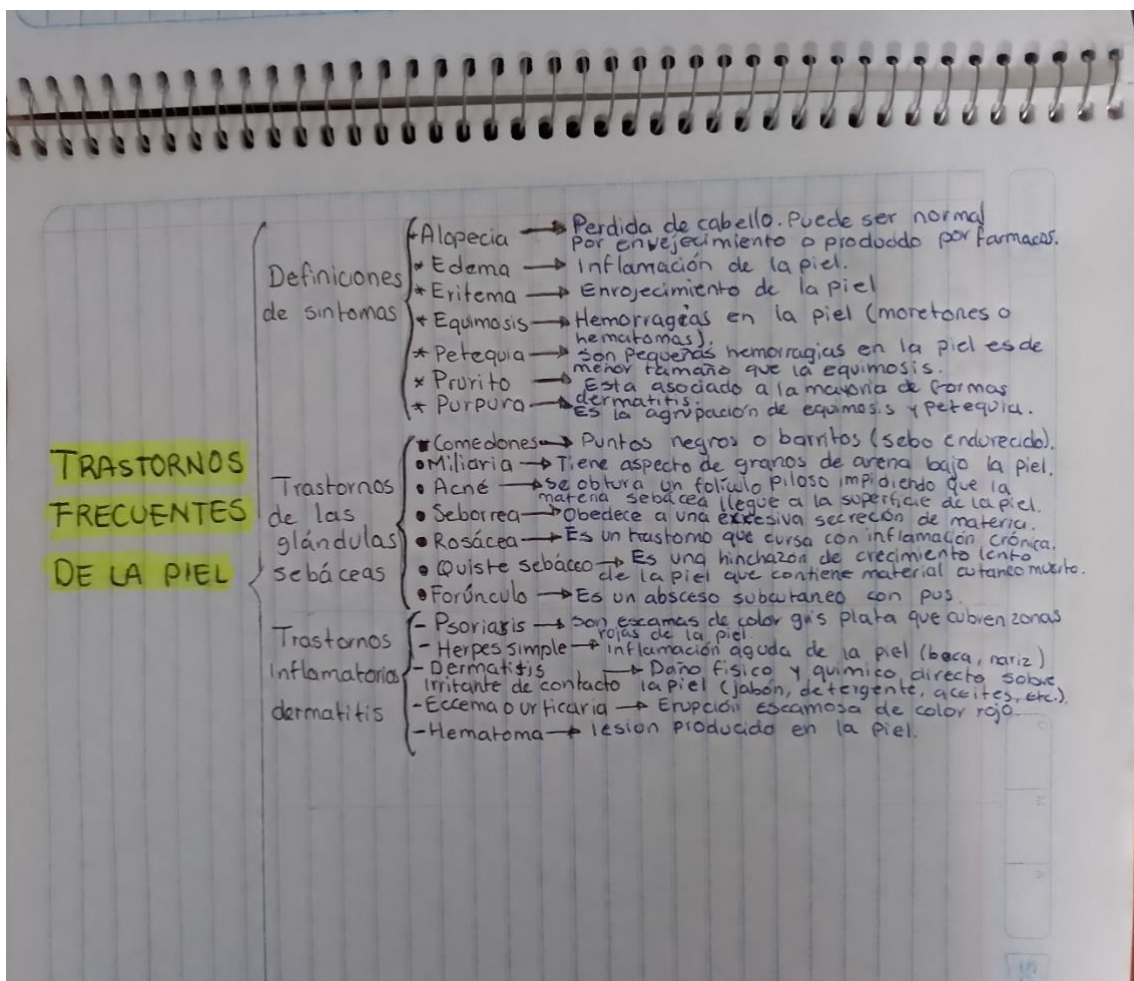 TRASTORNOS
FRECUENTES
DE LA PIEL
Definiciones
de sintomas
Alopecia → Perdida de cabello. Puede ser normal
por envejecimiento o producido por farmacos.
* Edema → Inflamación de la piel.
* Eritema → Enrojecimiento de la piel
* Equimosis → Hemorragias en la piel (moretones o
hematomas).
* Petequia → son pequeñas hemorragias en la piel es de
menor tamaño que la equimosis.
* Prurito → Esta asociado a la mayoria de formas
dermatitis.
* Purpura → Es la agrupación de equimosis y petequia.
Trastornos
de las
glándulas
sebáceas
• Comedones → Puntos negros o barritos (sebo endurecido).
• Miliaria → Tiene aspecto de granos de arena bajo la piel.
• Acné → se obtura un folículo piloso impidiendo que la
materia sebácea llegue a la superficie de la piel.
• Seborrea → Obedece a una excesiva secreción de materia.
• Rosácea → Es un trastorno que cursa con inflamación crónica.
• Quiste sebáceo → Es una hinchazón de crecimiento lento
de la piel que contiene material cutaneo muerto.
• Forúnculo → Es un absceso subcutaneo con pus.
Trastornos
Inflamatorios
dermatitis
- Psoriasis → son escamas de color gris plata que cubren zonas
rojas de la piel
- Herpes simple → inflamación aguda de la piel (boca, nariz)
- Dermatitis → Daño fisico y quimico directo sobre
irritante de contacto la piel (jabón, detergente, aceites, etc.).
- Eccema o urticaria → Erupción escamosa de color rojo.
- Hematoma → lesion producido en la piel.